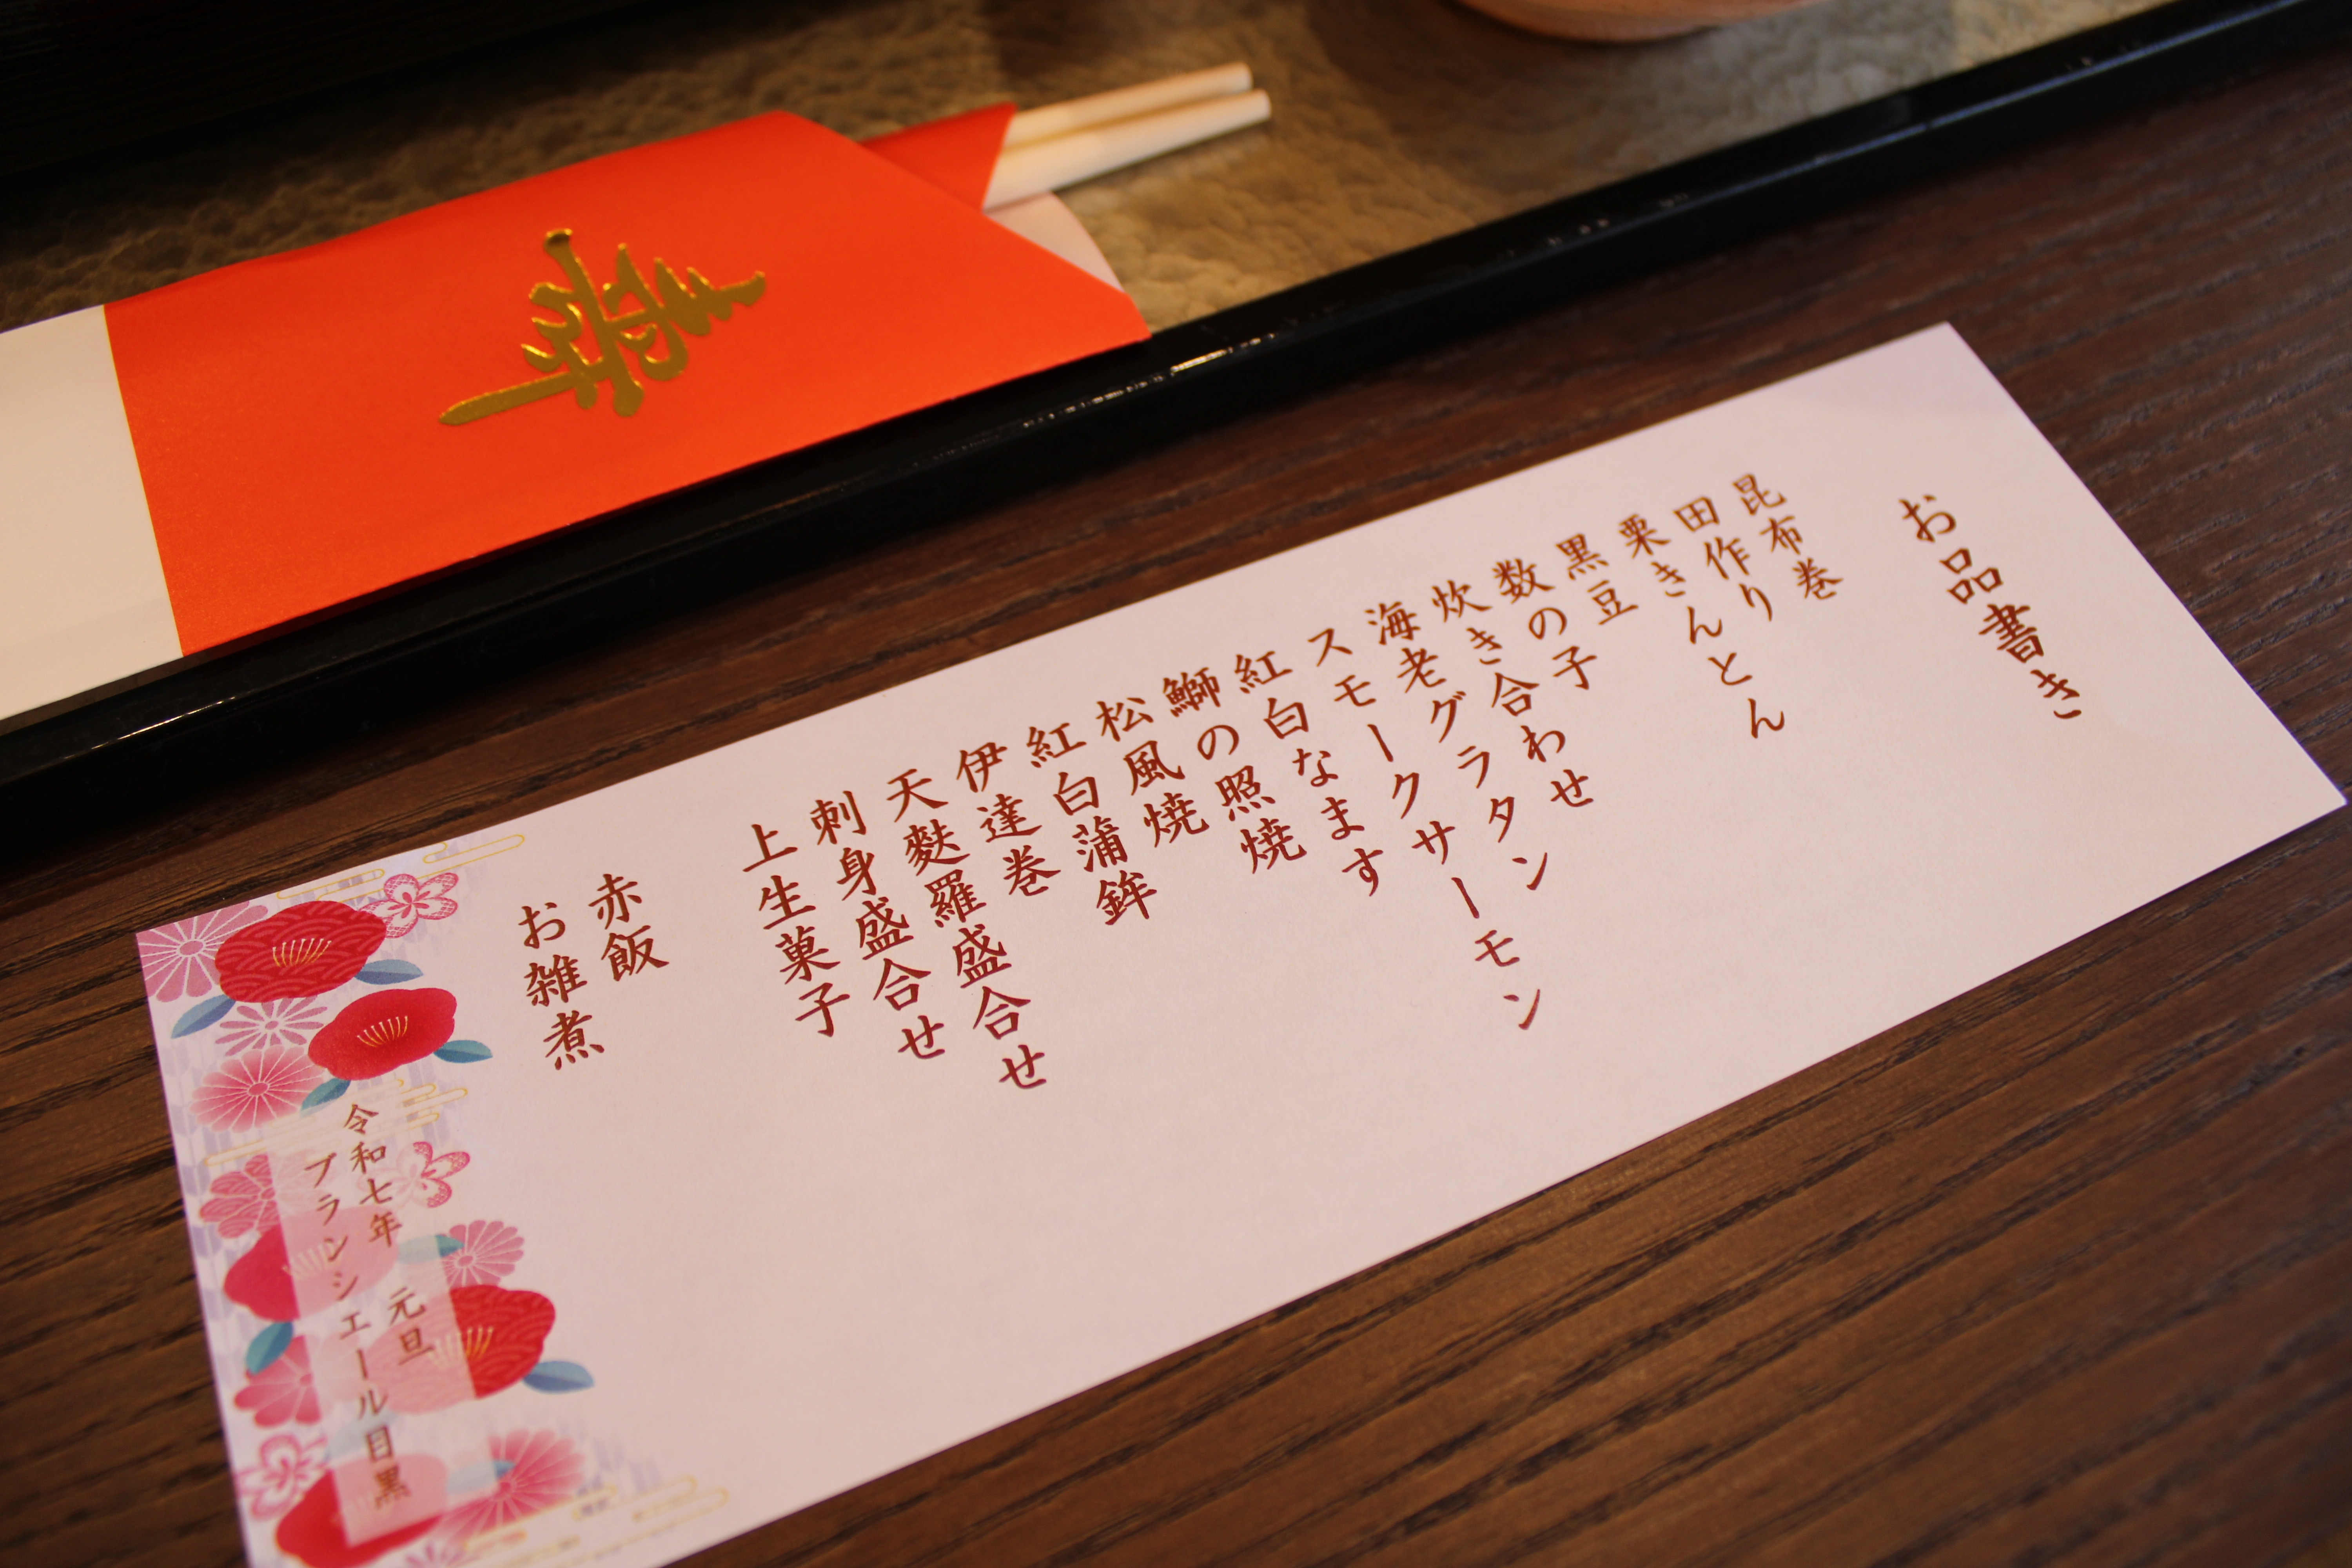 寿
お品書き
昆布巻
田作り
栗きんとん
黒豆
数の子
炊き合わせ
海老グラタン
スモークサーモン
紅白なます
鰤の照焼
松風焼
紅白蒲鉾
伊達巻
天麩羅盛合せ
刺身盛合せ
上生菓子
赤飯
お雑煮
令和七年 元旦
ブランシエール目黒